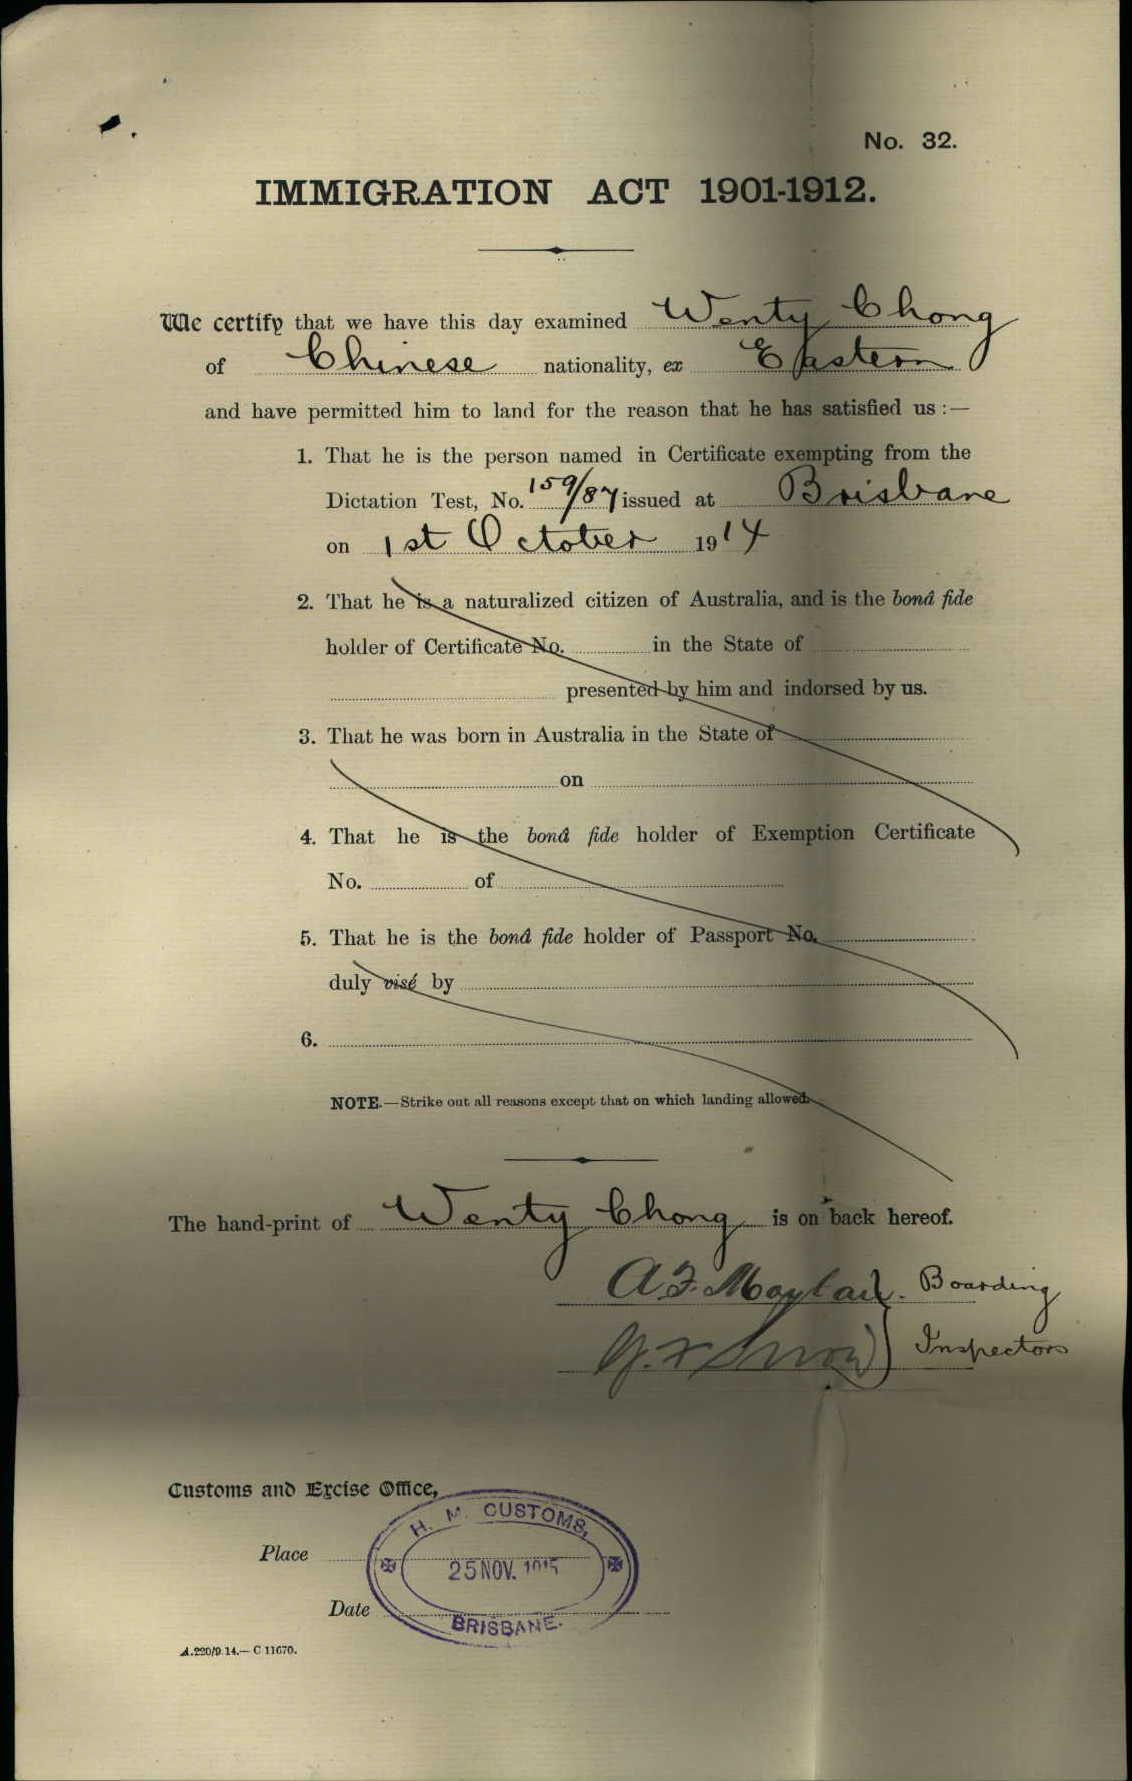 No. 32.
IMMIGRATION ACT 1901-1912.
We certify that we have this day examined Wenty Chong
of Chinese nationality, ex Eastern
and have permitted him to land for the reason that he has satisfied us :—
1. That he is the person named in Certificate exempting from the
Dictation Test, No. 159/87 issued at Brisbane
on 1st October 1914
2. That he is a naturalized citizen of Australia, and is the bonâ fide
holder of Certificate No. in the State of
presented by him and indorsed by us.
3. That he was born in Australia in the State of
on
4. That he is the bonâ fide holder of Exemption Certificate
No. of
5. That he is the bonâ fide holder of Passport No.
duly visé by
6.
NOTE.—Strike out all reasons except that on which landing allowed.
The hand-print of Wenty Chong is on back hereof.
A.F. Boarding
G.F. Snow Inspectors
Customs and Excise Office,
H. M. CUSTOMS,
Place
25 NOV. 1915
Date
BRISBANE.
A.220/9.14.—C 11670.